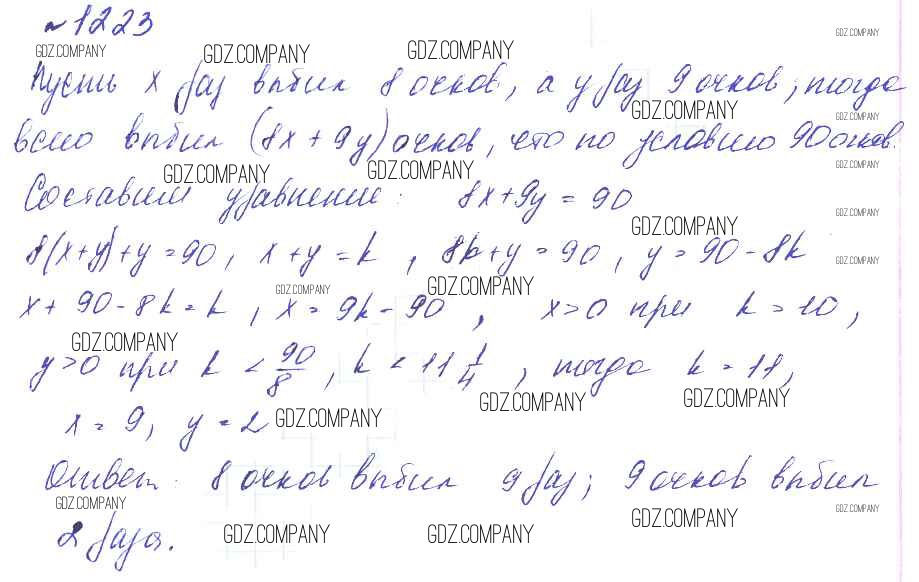 №1223
GDZ.COMPANY GDZ.COMPANY GDZ.COMPANY GDZ.COMPANY
Пусть x раз выбил 8 очков, а y раз 9 очков, тогда
GDZ.COMPANY GDZ.COMPANY
всего выбил (8x + 9y) очков, что по условию 90 очков.
GDZ.COMPANY GDZ.COMPANY GDZ.COMPANY
Составим уравнение: 8x+9y = 90
GDZ.COMPANY GDZ.COMPANY
8(x+y)+y=90, x+y=k, 8k+y=90, y=90-8k
GDZ.COMPANY GDZ.COMPANY GDZ.COMPANY
x+90-8k=k, x=9k-90, x>0 при k=10,
GDZ.COMPANY
y>0 при k < 90/8, k < 11 1/4, тогда k=11,
GDZ.COMPANY GDZ.COMPANY
x=9, y=2 GDZ.COMPANY
Ответ: 8 очков выбил 9 раз; 9 очков выбил
GDZ.COMPANY GDZ.COMPANY GDZ.COMPANY
2 раза. GDZ.COMPANY GDZ.COMPANY